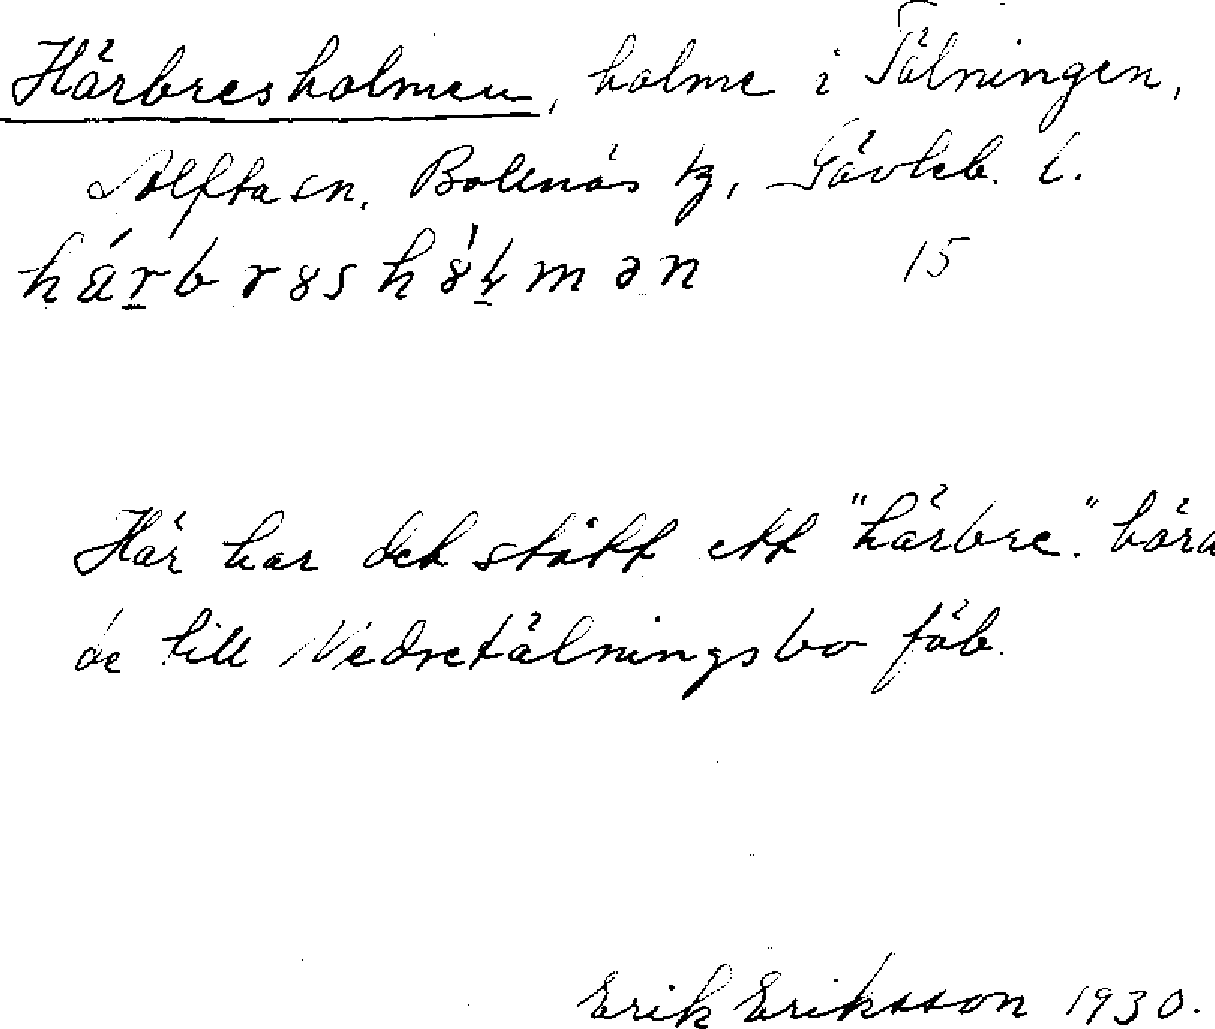 Härbresholmen, holme i Tälningen,
Alfta sn. Bollnäs tg, Gävleb. l.
15
Här har det stått ett "härbre". hörd
de till Nedretälningsbo fäb.
Erik Eriksson 1930.